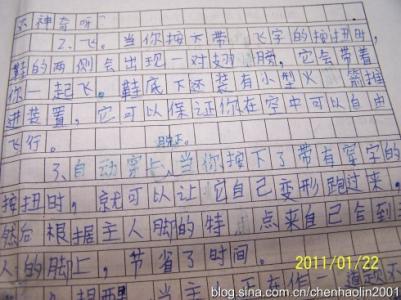 神奇呀
2.飞。当你按下带 飞字的按扭时,
鞋的两侧会出现一对翅 膀,它会带着
你一起飞。鞋底下还装有小型火 箭推
进装置,它可以保证你在空中可以自由
飞行。
3、自动穿上,当你按下了带有穿字的
按扭时,就可以让它自己变形跑过来,
然后根据主人脚的特 点来自己合到
人的脚上,节省了时间。
2011/01/22
当主
blog.sina.com.cn/chenhaolin2001